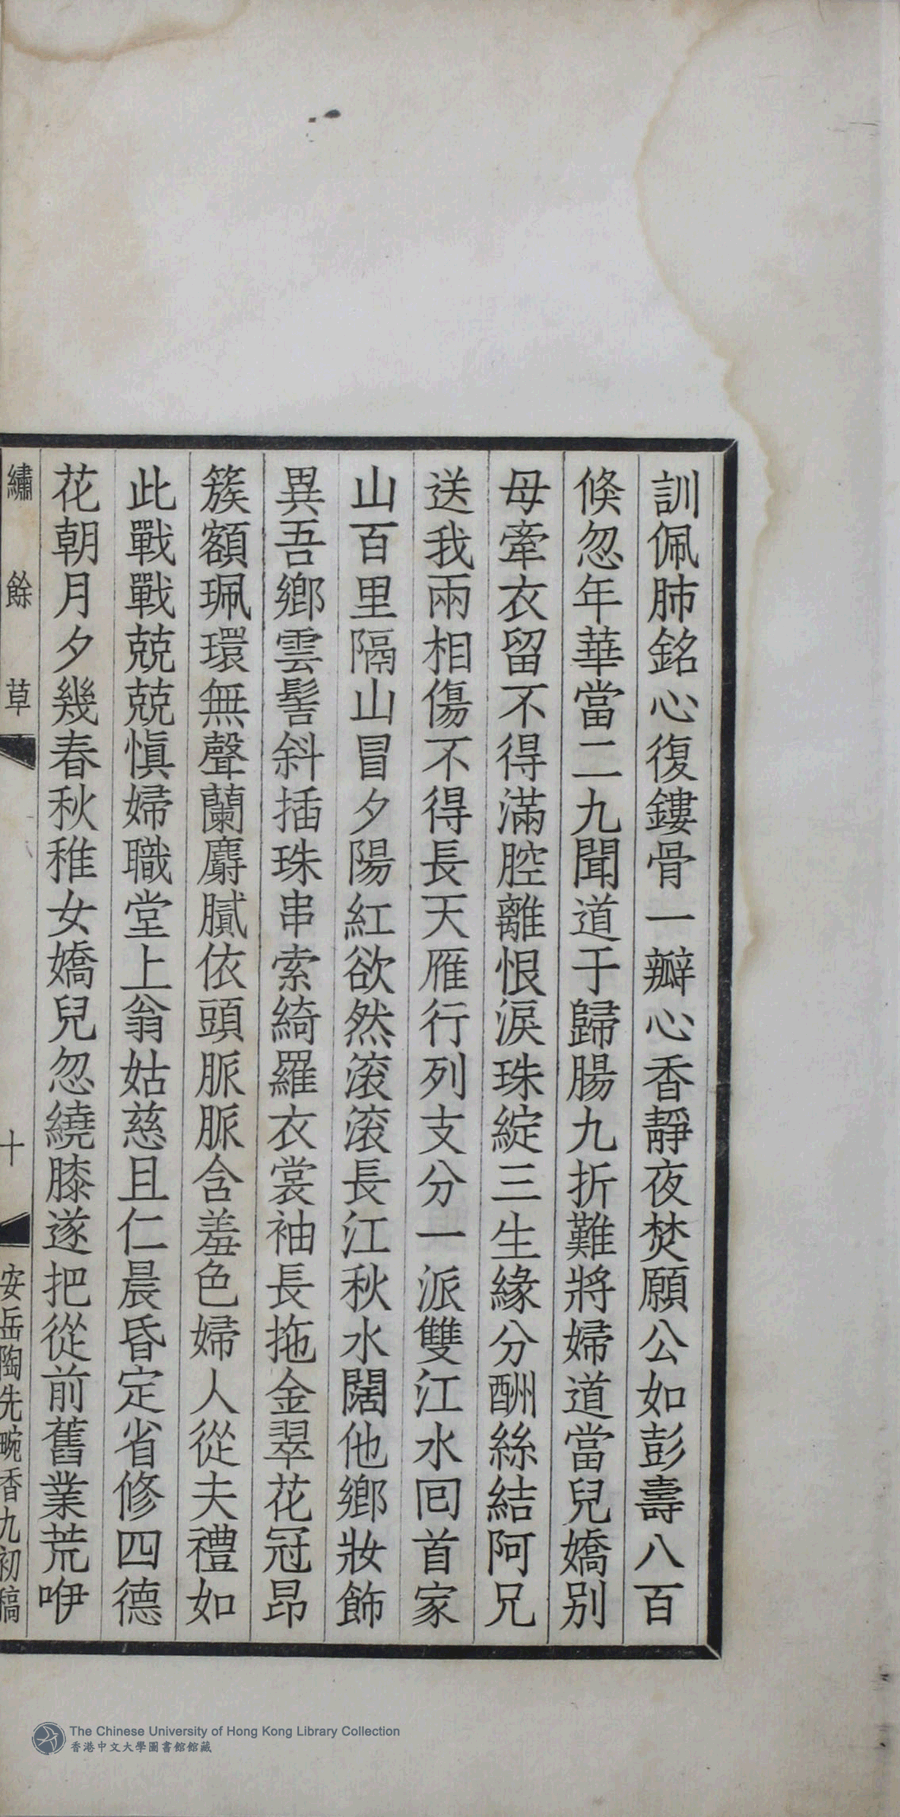 訓佩肺銘心復鏤骨一瓣心香靜夜焚願公如彭壽八百
倐忽年華當二九聞道于歸腸九折難將婦道當兒嬌別
母牽衣留不得滿腔離恨淚珠綻三生緣分酬絲結阿兄
送我兩相傷不得長天雁行列支分一派雙江水回首家
山百里隔山冒夕陽紅欲然滚滚長江秋水闊他鄉妝飾
異吾鄉雲髻斜插珠串索綺羅衣裳袖長拖金翠花冠昂
簇額珮環無聲蘭麝膩依頭脈脈含羞色婦人從夫禮如
此戰戰兢兢慎婦職堂上翁姑慈且仁晨昏定省修四德
花朝月夕幾春秋稚女嬌兒忽繞膝遂把從前舊業荒咿
繡餘草 十 安岳陶先畹香九初稿
The Chinese University of Hong Kong Library Collection
香港中文大學圖書館館藏